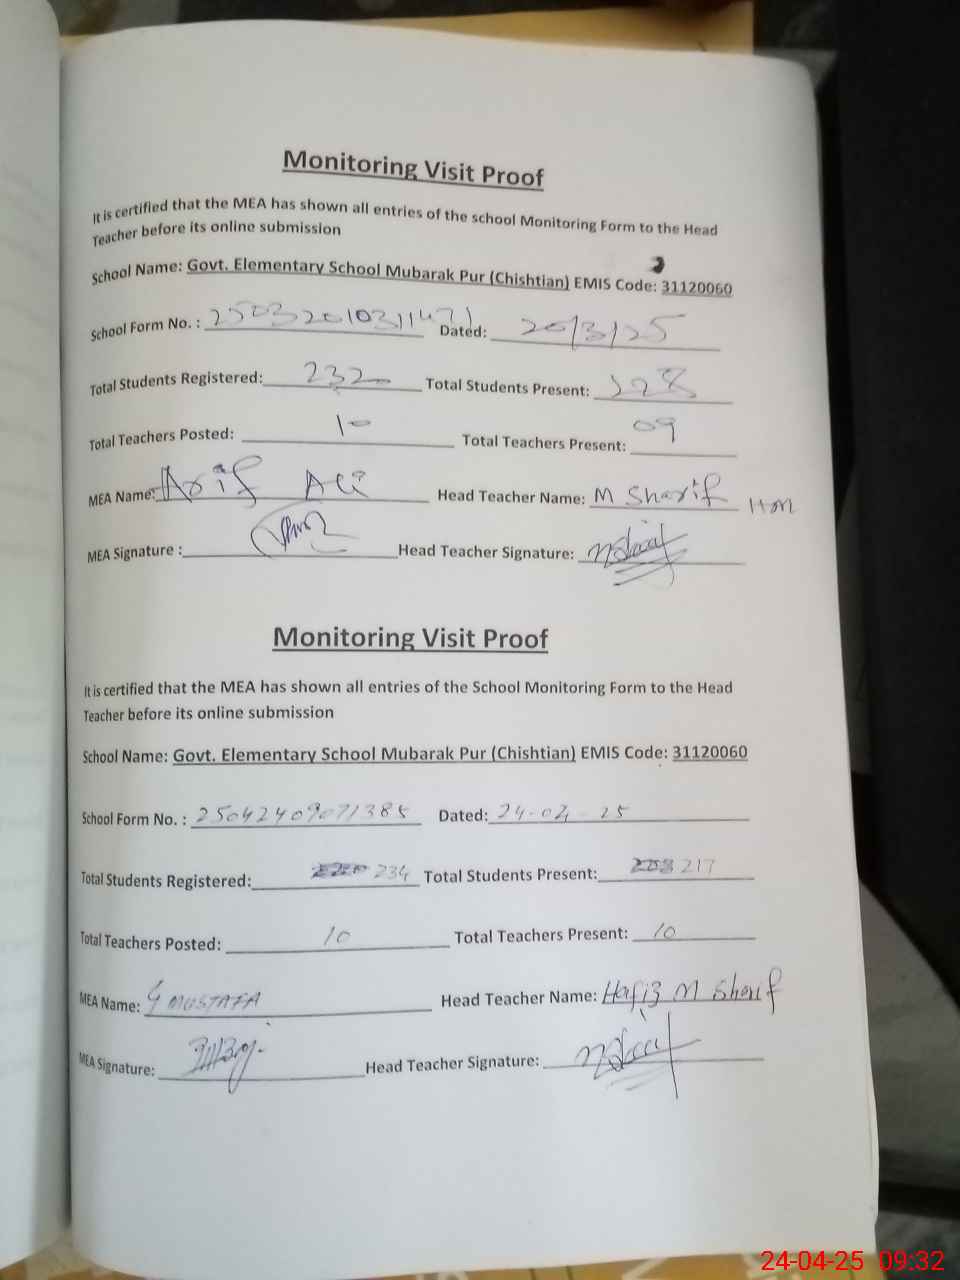 Monitoring Visit Proof
It is certified that the MEA has shown all entries of the school Monitoring Form to the Head
Teacher before its online submission
School Name: Govt. Elementary School Mubarak Pur (Chishtian) EMIS Code: 31120060
School Form No. : 25032010311471 Dated: 20/3/25
Total Students Registered: 232 Total Students Present: 228
Total Teachers Posted: 10 Total Teachers Present: 09
MEA Name: Arif Ali Head Teacher Name: M Sharif HM
MEA Signature : Head Teacher Signature:
Monitoring Visit Proof
It is certified that the MEA has shown all entries of the School Monitoring Form to the Head
Teacher before its online submission
School Name: Govt. Elementary School Mubarak Pur (Chishtian) EMIS Code: 31120060
School Form No. : 25042409071385 Dated: 24-04-25
Total Students Registered: 234 Total Students Present: 217
Total Teachers Posted: 10 Total Teachers Present: 10
MEA Name: G MUSTAFA Head Teacher Name: Hafiz M Sharif
MEA Signature: Head Teacher Signature:
24-04-25 09:32